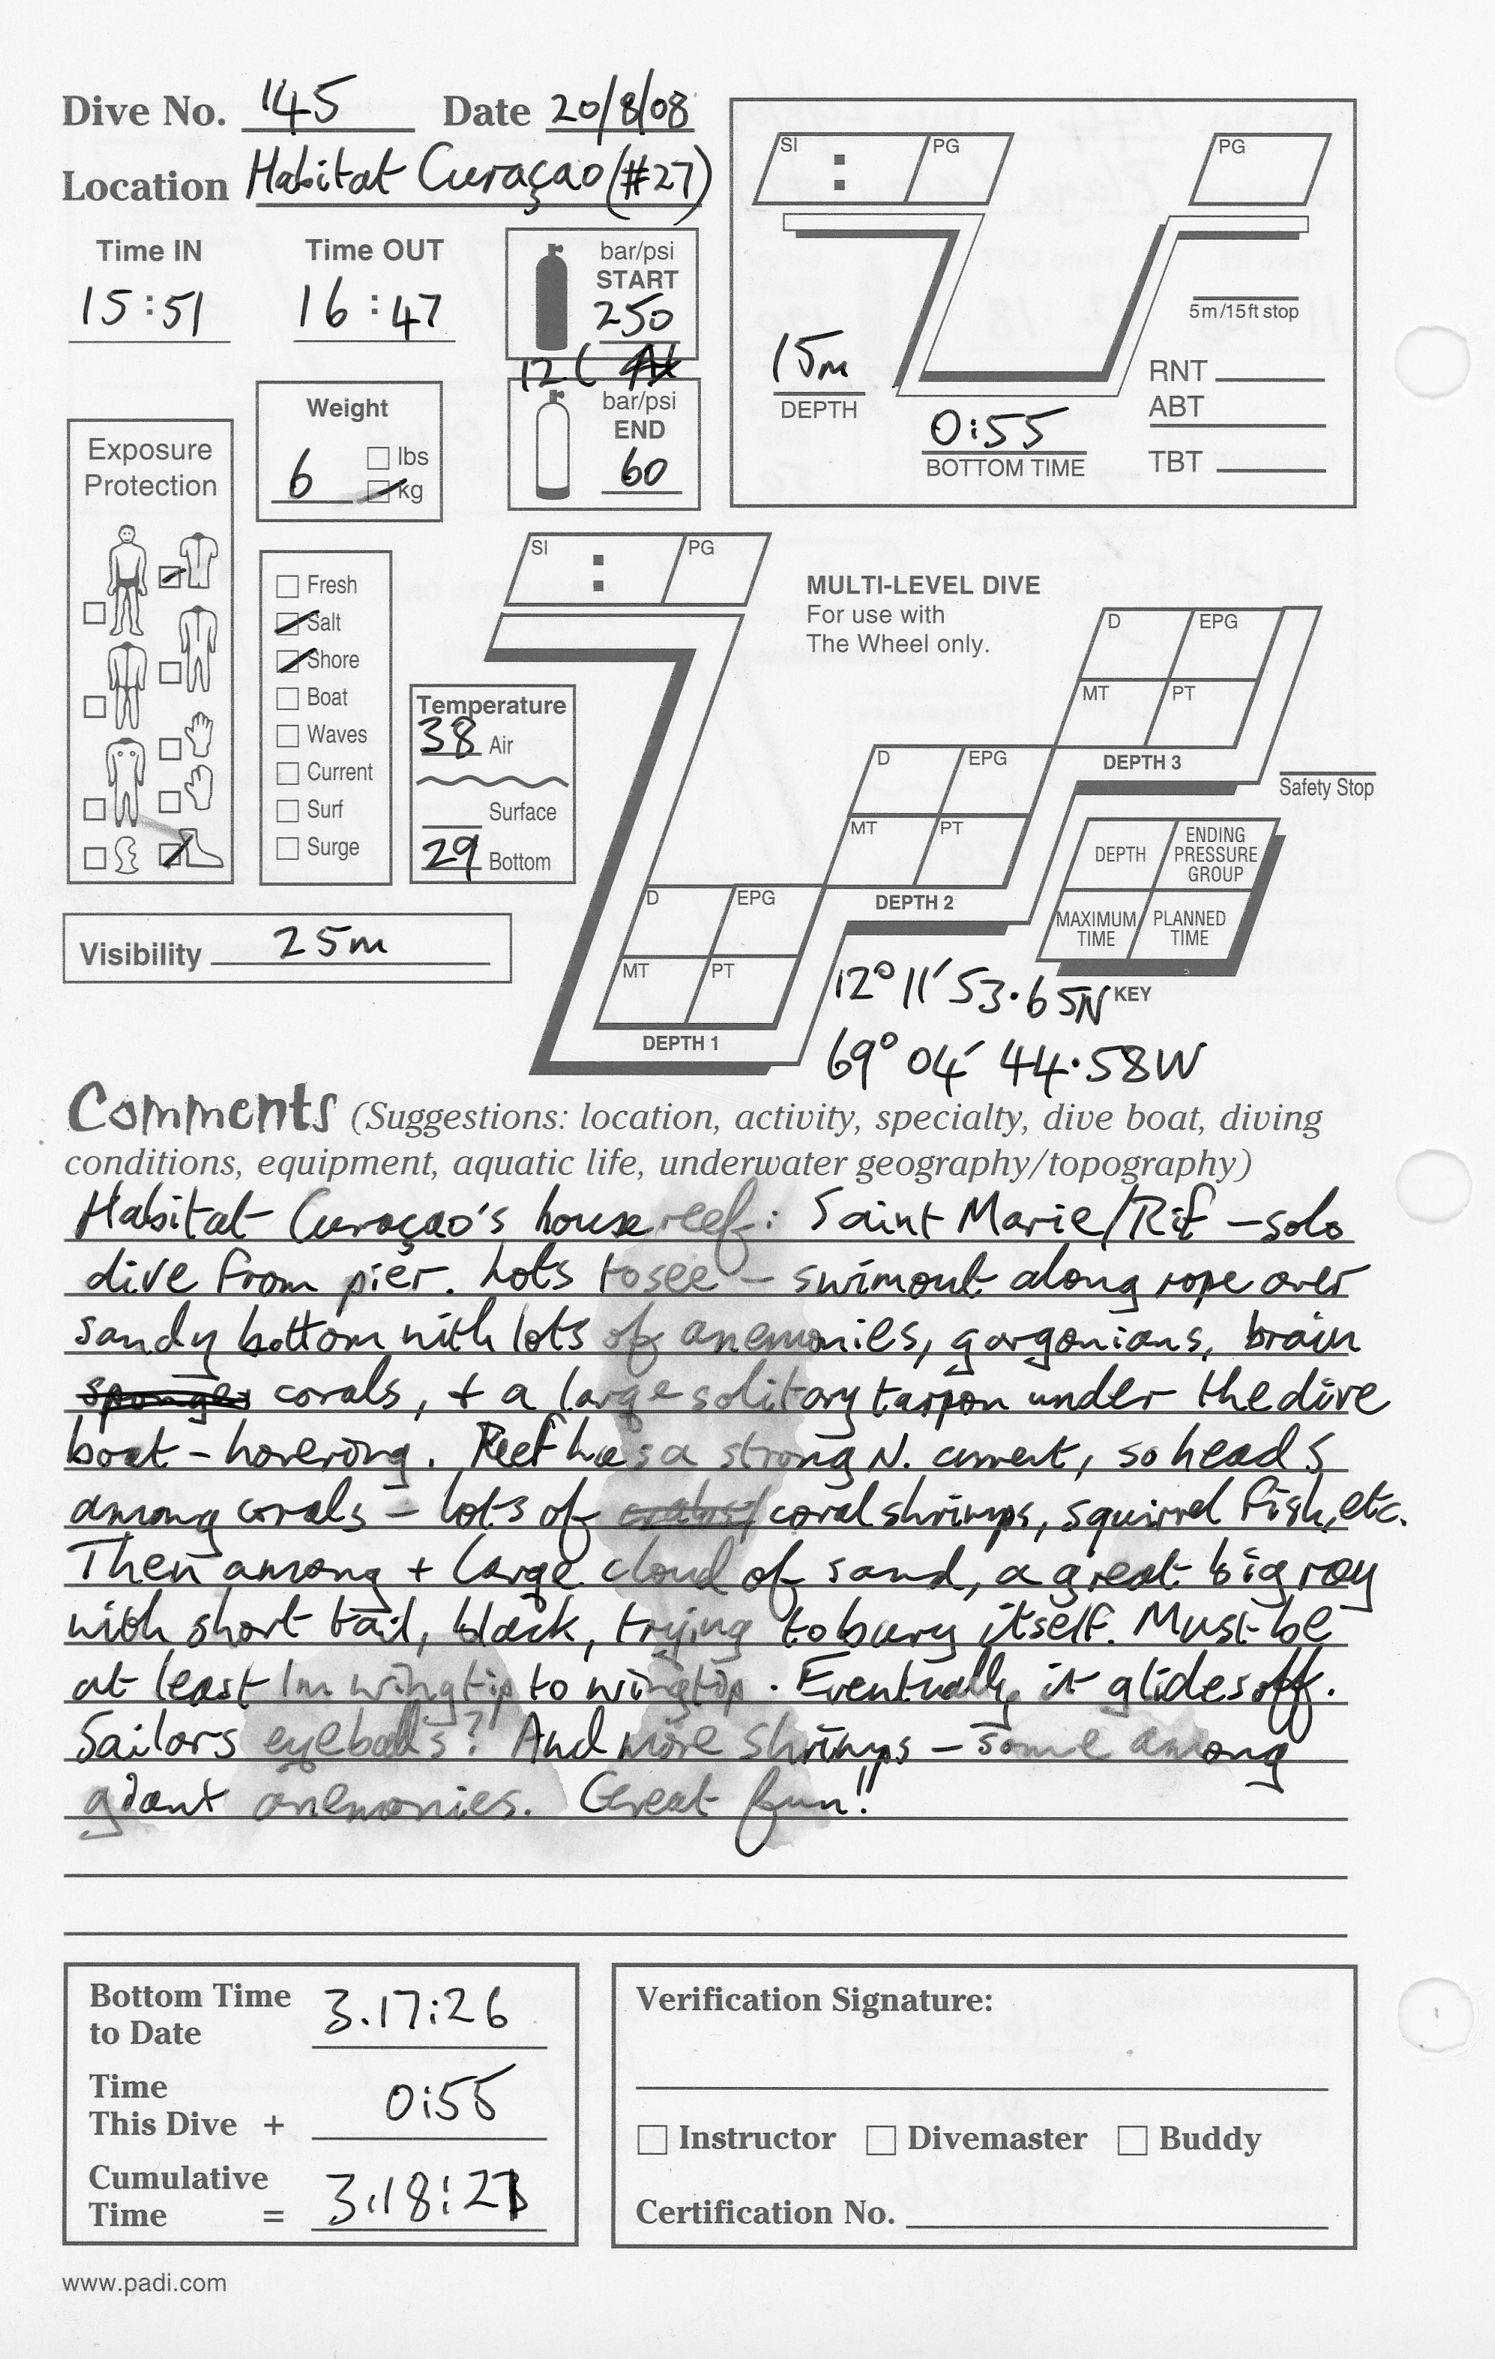 Dive No. 145 Date 20/8/08
Location Habitat Curaçao (#27)
Time IN Time OUT
15:51 16:47
bar/psi
START
250
12L
bar/psi
END
60
Weight
6 lbs
kg
Exposure
Protection
Fresh
Salt
Shore
Boat
Waves
Current
Surf
Surge
Temperature
38 Air
Surface
29 Bottom
Visibility 25m
SI : PG
PG
15m
DEPTH
0:55
BOTTOM TIME
5m/15ft stop
RNT
ABT
TBT
SI : PG
MULTI-LEVEL DIVE
For use with
The Wheel only.
D EPG
MT PT
DEPTH 3
D EPG
MT PT
DEPTH 2
D EPG
MT PT
DEPTH 1
Safety Stop
DEPTH ENDING PRESSURE GROUP
MAXIMUM TIME PLANNED TIME
KEY
12° 11′ 53.65N
69° 04′ 44.58W
Comments (Suggestions: location, activity, specialty, dive boat, diving
conditions, equipment, aquatic life, underwater geography/topography)
Habitat Curaçao's house reef: Saint Marie/Rif – solo
dive from pier. Lots to see – swimout along rope over
sandy bottom with lots of anemonies, gorgonians, brain
sponges corals, + a large solitary tarpon under the dive
boat – hovering. Reef has a strong N. current, so head S
among corals – lots of coral shrimps, squirrel fish, etc.
Then among + large cloud of sand, a great big ray
with short tail, black, trying to bury itself. Must be
at least 1m wingtip to wingtip. Eventually it glides off.
Sailors eyeballs? And more shrimps – some among
giant anemonies. Great fun!!
Bottom Time
to Date 3.17:26
Time
This Dive + 0:55
Cumulative
Time = 3.18:21
Verification Signature:
Instructor Divemaster Buddy
Certification No.
www.padi.com